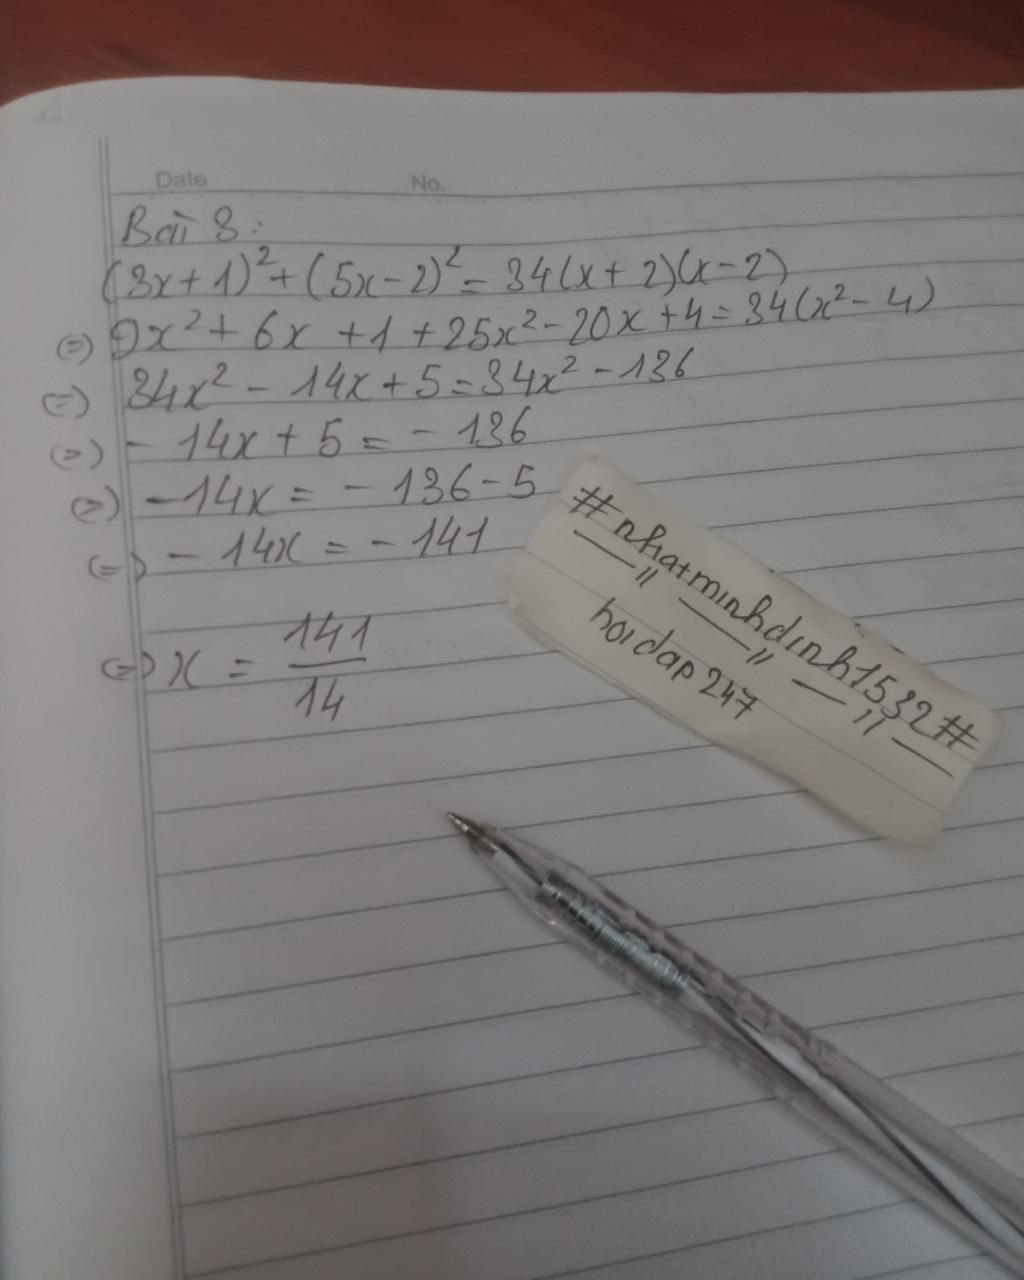 Date No.
Bài 8:
(3x+1)²+(5x-2)²=34(x+2)(x-2)
(=) 9x²+6x+1+25x²-20x+4=34(x²-4)
(=) 34x²-14x+5=34x²-136
(=) -14x+5=-136
(=) -14x=-136-5
(=) -14x=-141
(=) x=141/14
#nhatminhdinh1532#
hoidap247